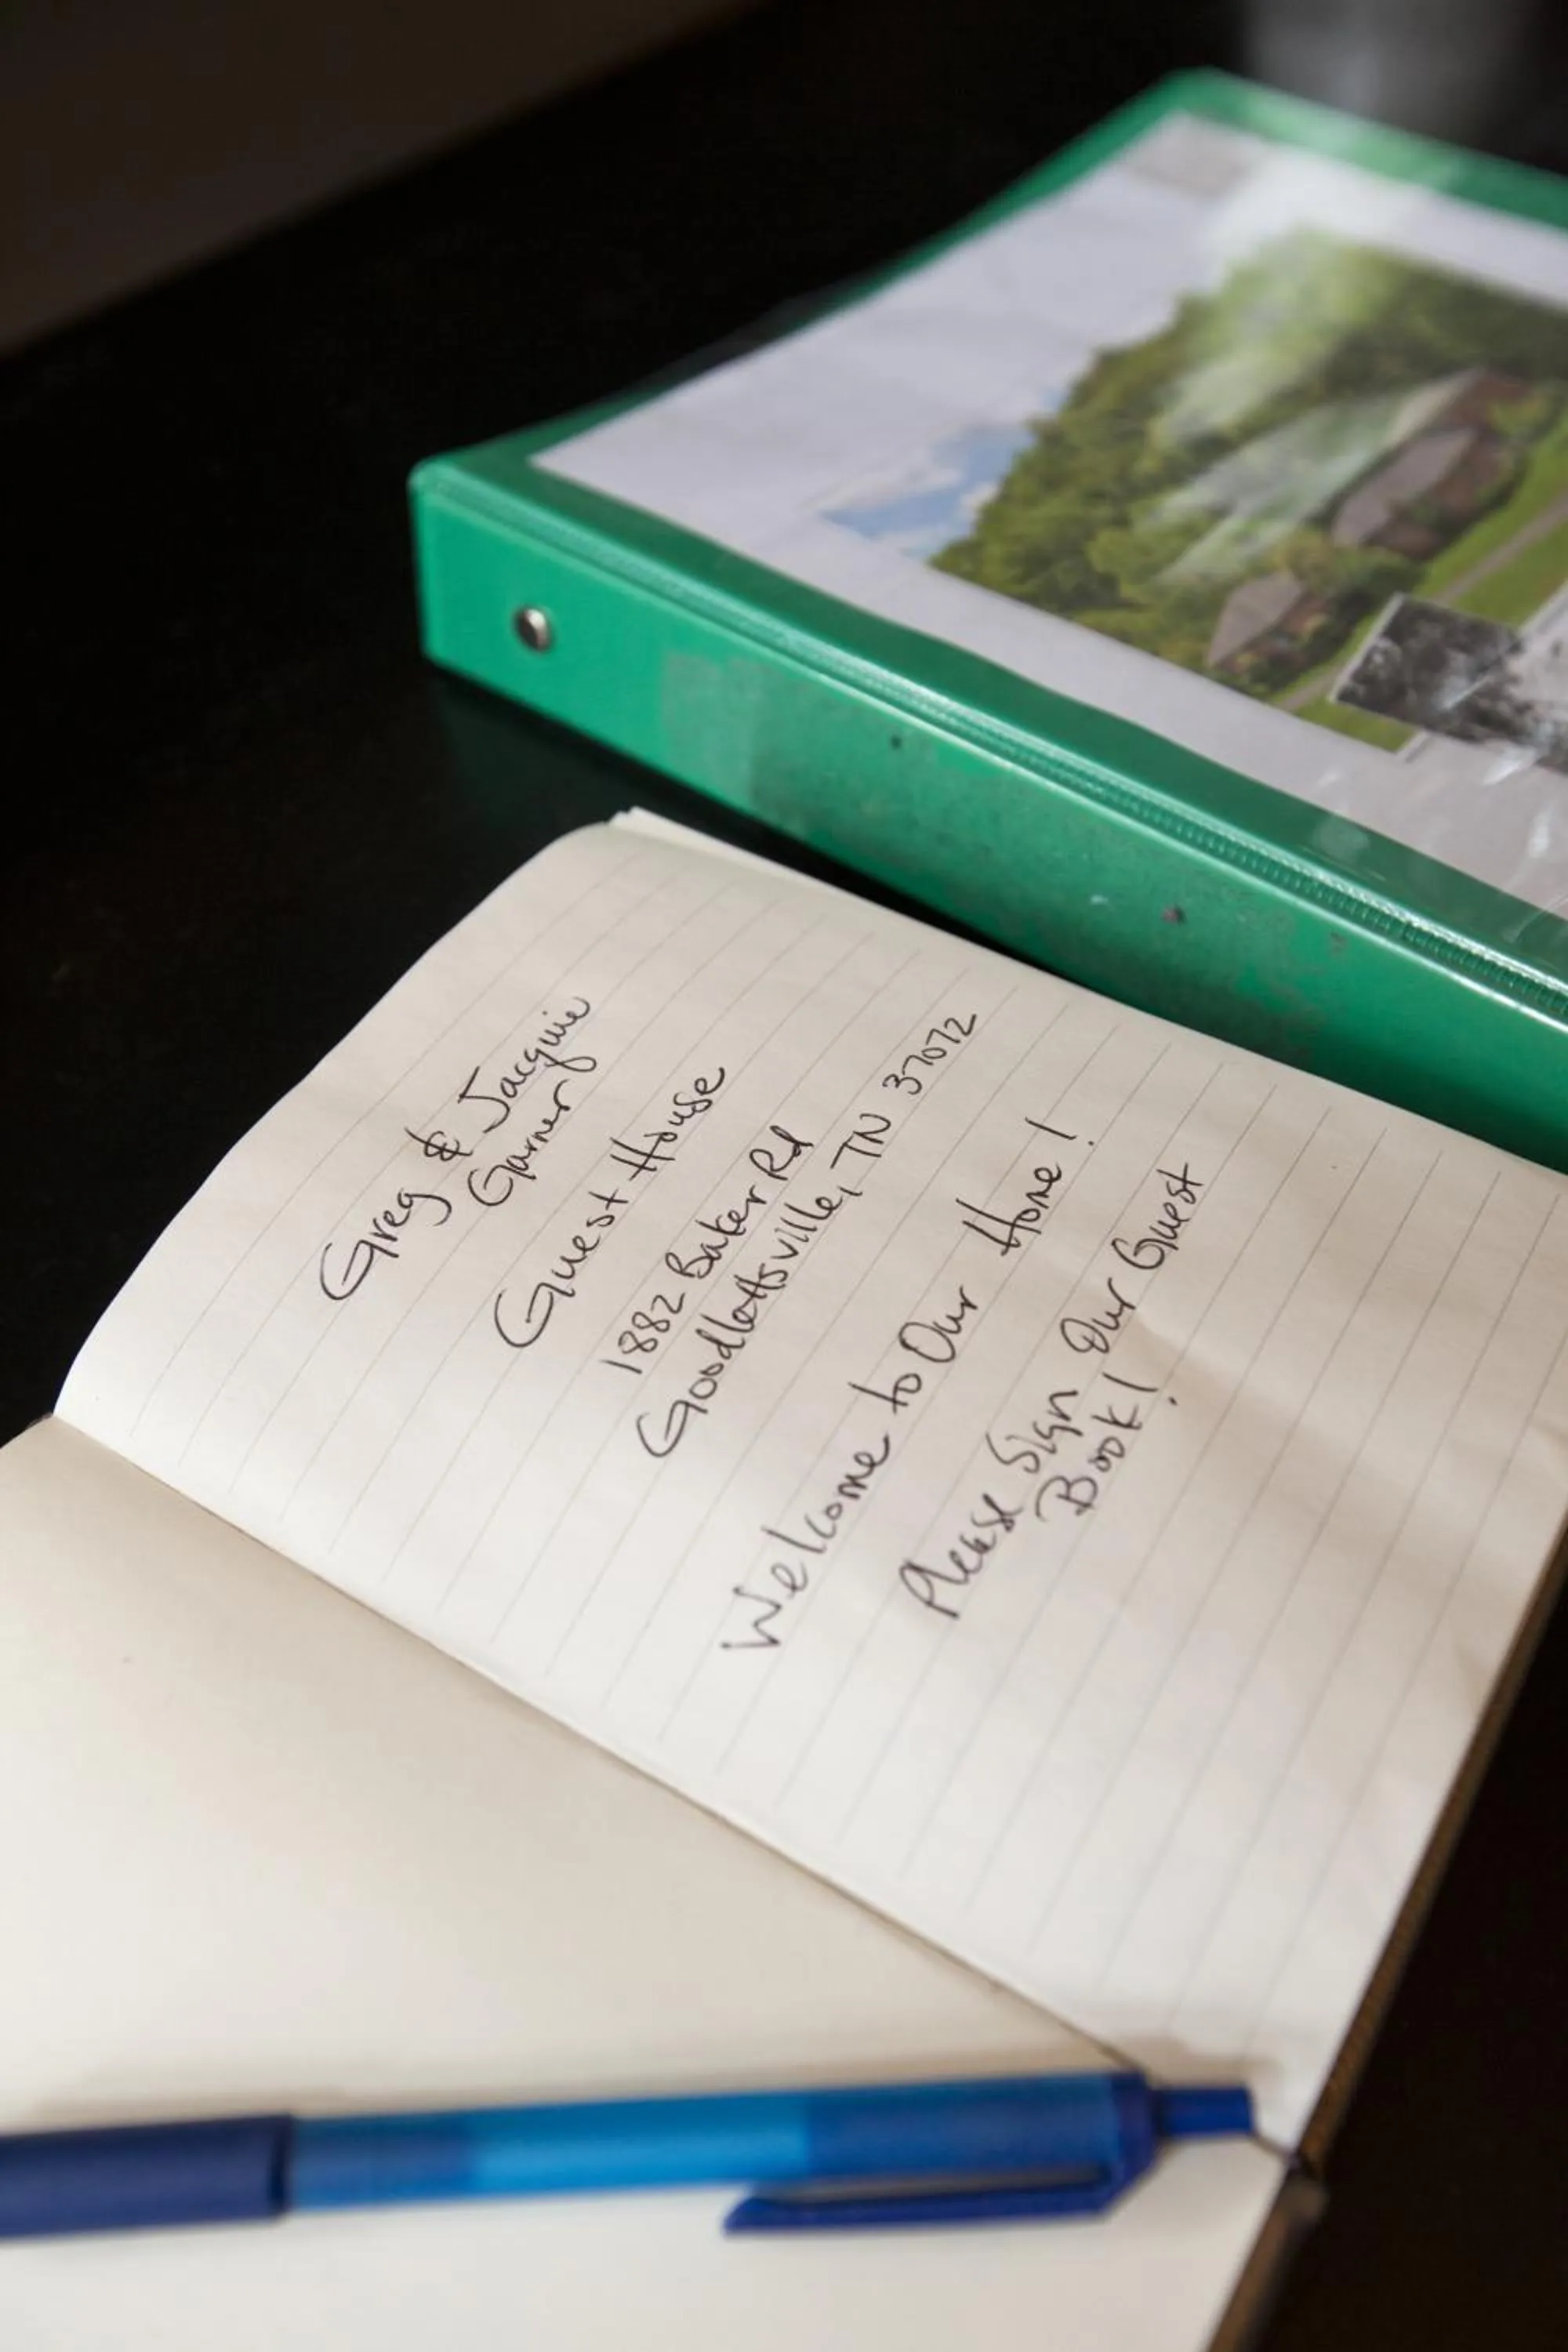 Greg & Jacquie
Garner
Guest House
1882 Baker Rd
Goodlettsville, TN 37072
Welcome to Our Home!
Please Sign Our Guest
Book!